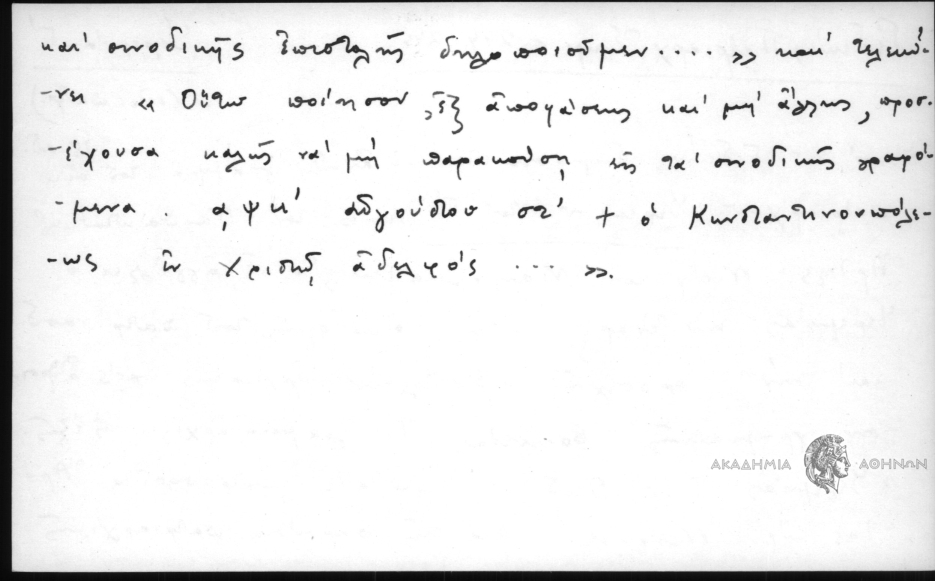 καὶ συνοδικῆς ἐπιστολῆς δηλοποιοῦμεν .... » καὶ τελειώ-
-νει « Οὕτω ποίησον, ἐξ ἀποφάσεως καὶ μὴ ἄλλως, προσ-
-έχουσα καλῶς νὰ μὴ παρακούσῃ εἰς τὰ συνοδικῶς γραφό-
-μενα. ͵αψκ' αὐγούστου στ' + ὁ Κωνσταντινουπόλε-
-ως ἐν Χριστῷ ἀδελφός ... ».
ΑΚΑΔΗΜΙΑ ΑΘΗΝΩΝ